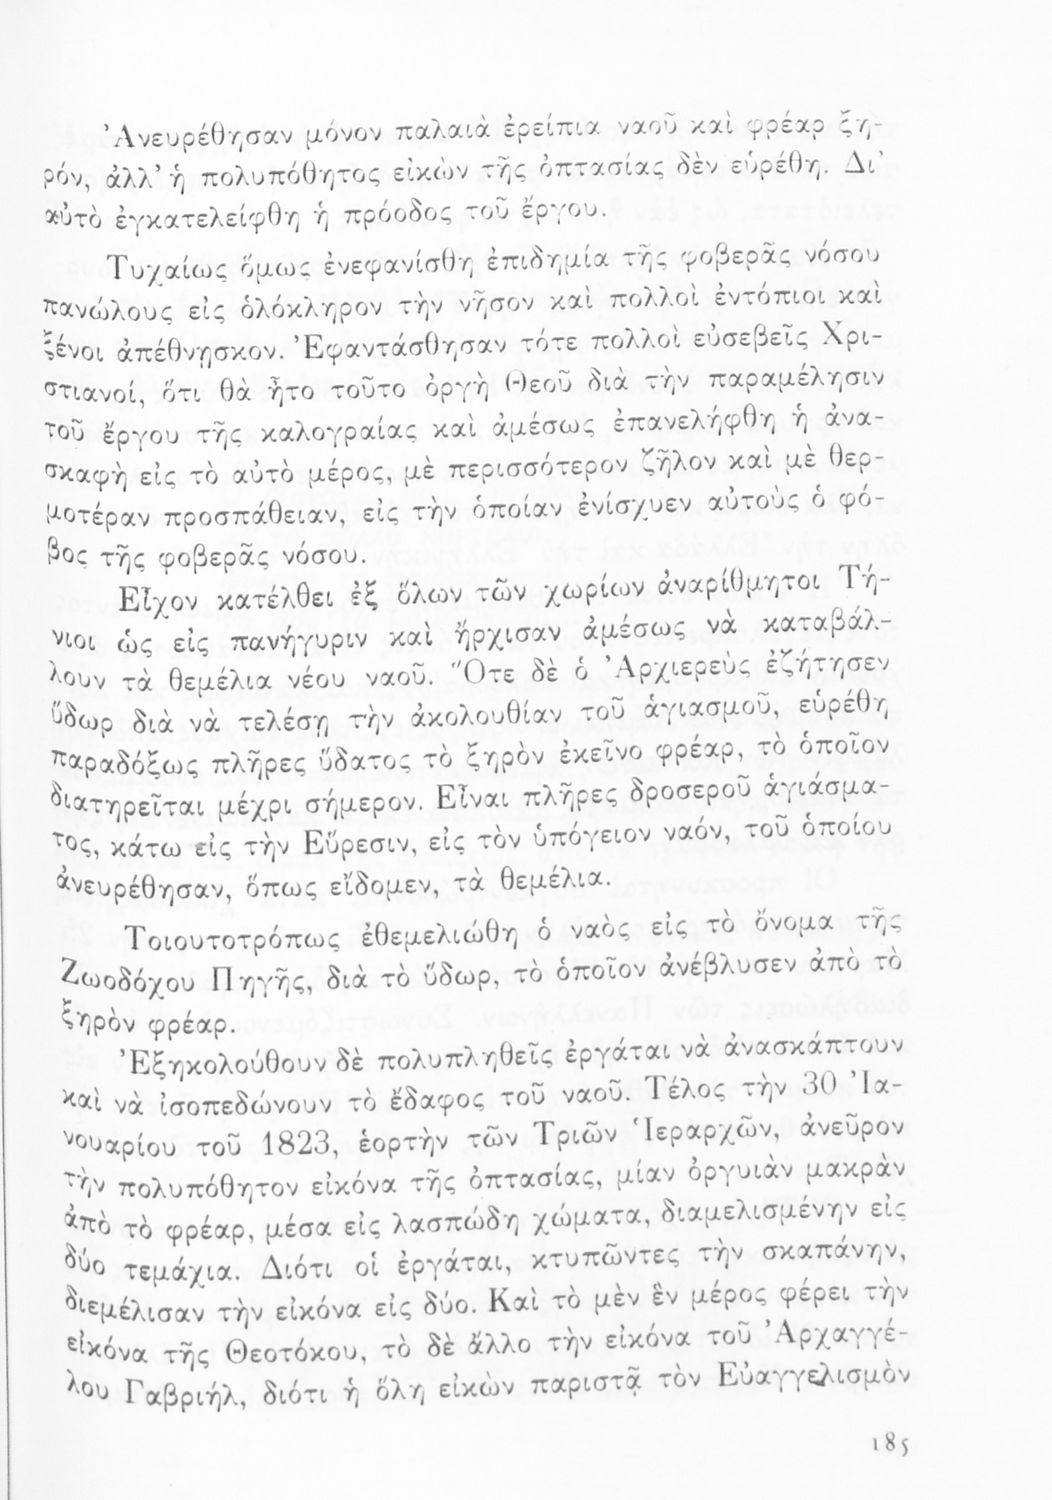 Ἀνευρέθησαν μόνον παλαιὰ ἐρείπια ναοῦ καὶ φρέαρ ξη-
ρόν, ἀλλ' ἡ πολυπόθητος εἰκὼν τῆς ὀπτασίας δὲν εὑρέθη. Δι'
αὐτὸ ἐγκατελείφθη ἡ πρόοδος τοῦ ἔργου.
Τυχαίως ὅμως ἐνεφανίσθη ἐπιδημία τῆς φοβερᾶς νόσου
πανώλους εἰς ὁλόκληρον τὴν νῆσον καὶ πολλοὶ ἐντόπιοι καὶ
ξένοι ἀπέθνησκον. Ἐφαντάσθησαν τότε πολλοὶ εὐσεβεῖς Χρι-
στιανοί, ὅτι θὰ ἦτο τοῦτο ὀργὴ Θεοῦ διὰ τὴν παραμέλησιν
τοῦ ἔργου τῆς καλογραίας καὶ ἀμέσως ἐπανελήφθη ἡ ἀνα-
σκαφὴ εἰς τὸ αὐτὸ μέρος, μὲ περισσότερον ζῆλον καὶ μὲ θερ-
μοτέραν προσπάθειαν, εἰς τὴν ὁποίαν ἐνίσχυεν αὐτοὺς ὁ φό-
βος τῆς φοβερᾶς νόσου.
Εἶχον κατέλθει ἐξ ὅλων τῶν χωρίων ἀναρίθμητοι Τή-
νιοι ὡς εἰς πανήγυριν καὶ ἤρχισαν ἀμέσως νὰ καταβάλ-
λουν τὰ θεμέλια νέου ναοῦ. Ὅτε δὲ ὁ Ἀρχιερεὺς ἐζήτησεν
ὕδωρ διὰ νὰ τελέσῃ τὴν ἀκολουθίαν τοῦ ἁγιασμοῦ, εὑρέθη
παραδόξως πλῆρες ὕδατος τὸ ξηρὸν ἐκεῖνο φρέαρ, τὸ ὁποῖον
διατηρεῖται μέχρι σήμερον. Εἶναι πλῆρες δροσεροῦ ἁγιάσμα-
τος, κάτω εἰς τὴν Εὕρεσιν, εἰς τὸν ὑπόγειον ναόν, τοῦ ὁποίου
ἀνευρέθησαν, ὅπως εἴδομεν, τὰ θεμέλια.
Τοιουτοτρόπως ἐθεμελιώθη ὁ ναὸς εἰς τὸ ὄνομα τῆς
Ζωοδόχου Πηγῆς, διὰ τὸ ὕδωρ, τὸ ὁποῖον ἀνέβλυσεν ἀπὸ τὸ
ξηρὸν φρέαρ.
Ἐξηκολούθουν δὲ πολυπληθεῖς ἐργάται νὰ ἀνασκάπτουν
καὶ νὰ ἰσοπεδώνουν τὸ ἔδαφος τοῦ ναοῦ. Τέλος τὴν 30 Ἰα-
νουαρίου τοῦ 1823, ἑορτὴν τῶν Τριῶν Ἱεραρχῶν, ἀνεῦρον
τὴν πολυπόθητον εἰκόνα τῆς ὀπτασίας, μίαν ὀργυιὰν μακρὰν
ἀπὸ τὸ φρέαρ, μέσα εἰς λασπώδη χώματα, διαμελισμένην εἰς
δύο τεμάχια. Διότι οἱ ἐργάται, κτυπῶντες τὴν σκαπάνην,
διεμέλισαν τὴν εἰκόνα εἰς δύο. Καὶ τὸ μὲν ἓν μέρος φέρει τὴν
εἰκόνα τῆς Θεοτόκου, τὸ δὲ ἄλλο τὴν εἰκόνα τοῦ Ἀρχαγγέ-
λου Γαβριήλ, διότι ἡ ὅλη εἰκὼν παριστᾷ τὸν Εὐαγγελισμὸν
185